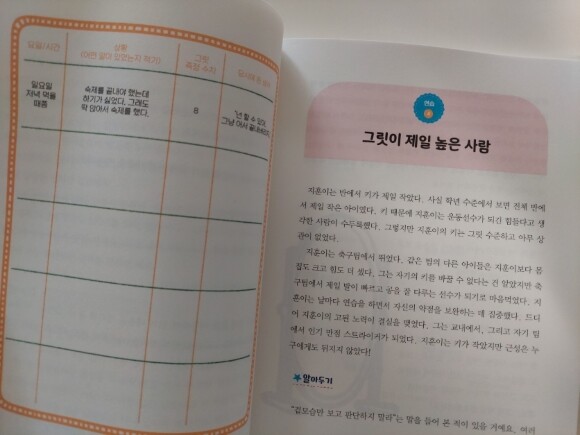 요일/시간
상황
(어떤 일이 있었는지 적기)
그릿
측정 수치
일요일
저녁 먹을
때쯤
숙제를 끝내야 했는데
하기가 싫었다. 그래도
딱 앉아서 숙제를 했다.
8
"넌 할 수 있어.
그냥 어서 끝내버려."
연습
그릿이 제일 높은 사람
지훈이는 반에서 키가 제일 작았다. 사실 학년 수준에서 보면 전체 반에
서 제일 작은 아이였다. 키 때문에 지훈이는 운동선수가 되긴 힘들다고 생
각한 사람이 수두룩했다. 그렇지만 지훈이의 키는 그릿 수준하고 아무 상
관이 없었다.
지훈이는 축구팀에서 뛰었다. 같은 팀의 다른 아이들은 지훈이보다 몸
집도 크고 힘도 더 셌다. 그는 자기의 키를 바꿀 수 없다는 건 알았지만 축
구팀에서 제일 발이 빠르고 공을 잘 다루는 선수가 되기로 마음먹었다. 지
훈이는 날마다 연습을 하면서 자신의 약점을 보완하는 데 집중했다. 드디
어 지훈이의 고된 노력이 결실을 맺었다. 그는 교내에서, 그리고 자기 팀
에서 인기 만점 스트라이커가 되었다. 지훈이는 키가 작았지만 근성은 누
구에게도 뒤지지 않았다!
알아두기
"겉모습만 보고 판단하지 말라"는 말을 들어 본 적이 있을 거예요. 여러